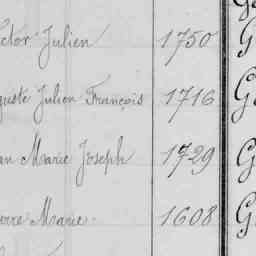 ctor Julien 1750 G
guste Julien François 1716 G
an Marie Joseph 1729 G
erre Marie 1608 G